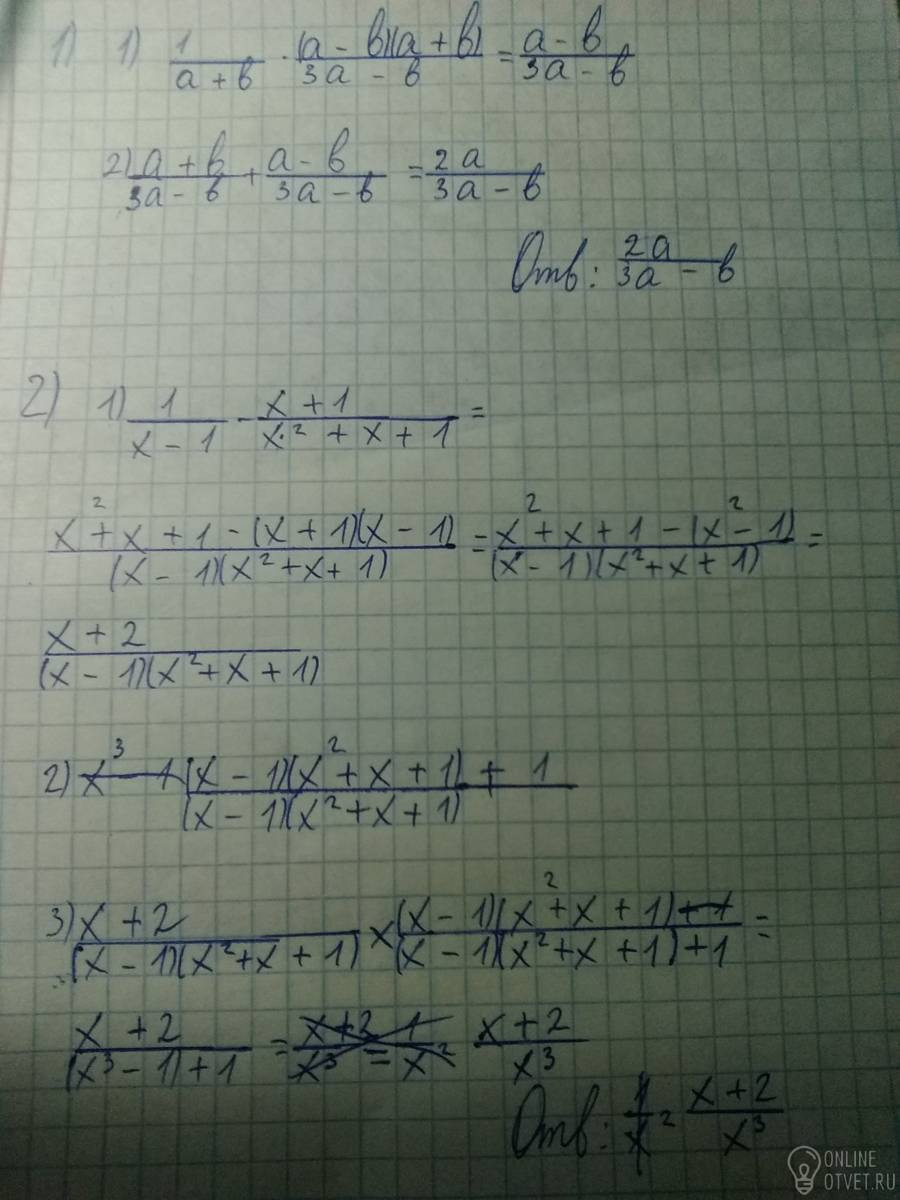 1) 1) 1/(a + b) · (a - b)(a + b)/(3a - b) = (a - b)/(3a - b)
2) (a + b)/(3a - b) + (a - b)/(3a - b) = 2a/(3a - b)
Отв: 2a/(3a - b)
2) 1) 1/(x - 1) - (x + 1)/(x² + x + 1) =
(x² + x + 1 - (x + 1)(x - 1))/((x - 1)(x² + x + 1)) = (x² + x + 1 - (x² - 1))/((x - 1)(x² + x + 1)) =
(x + 2)/((x - 1)(x² + x + 1))
2) x³ - 1 (x - 1)(x² + x + 1) + 1/(x - 1)(x² + x + 1)
3) (x + 2)/((x - 1)(x² + x + 1)) × ((x - 1)(x² + x + 1) + 1)/((x - 1)(x² + x + 1) + 1) =
(x + 2)/((x³ - 1) + 1) = (x + 2)/x³ = 1/x² (x + 2)/x³
Отв: 1/x² (x + 2)/x³
ONLINE
OTVET.RU